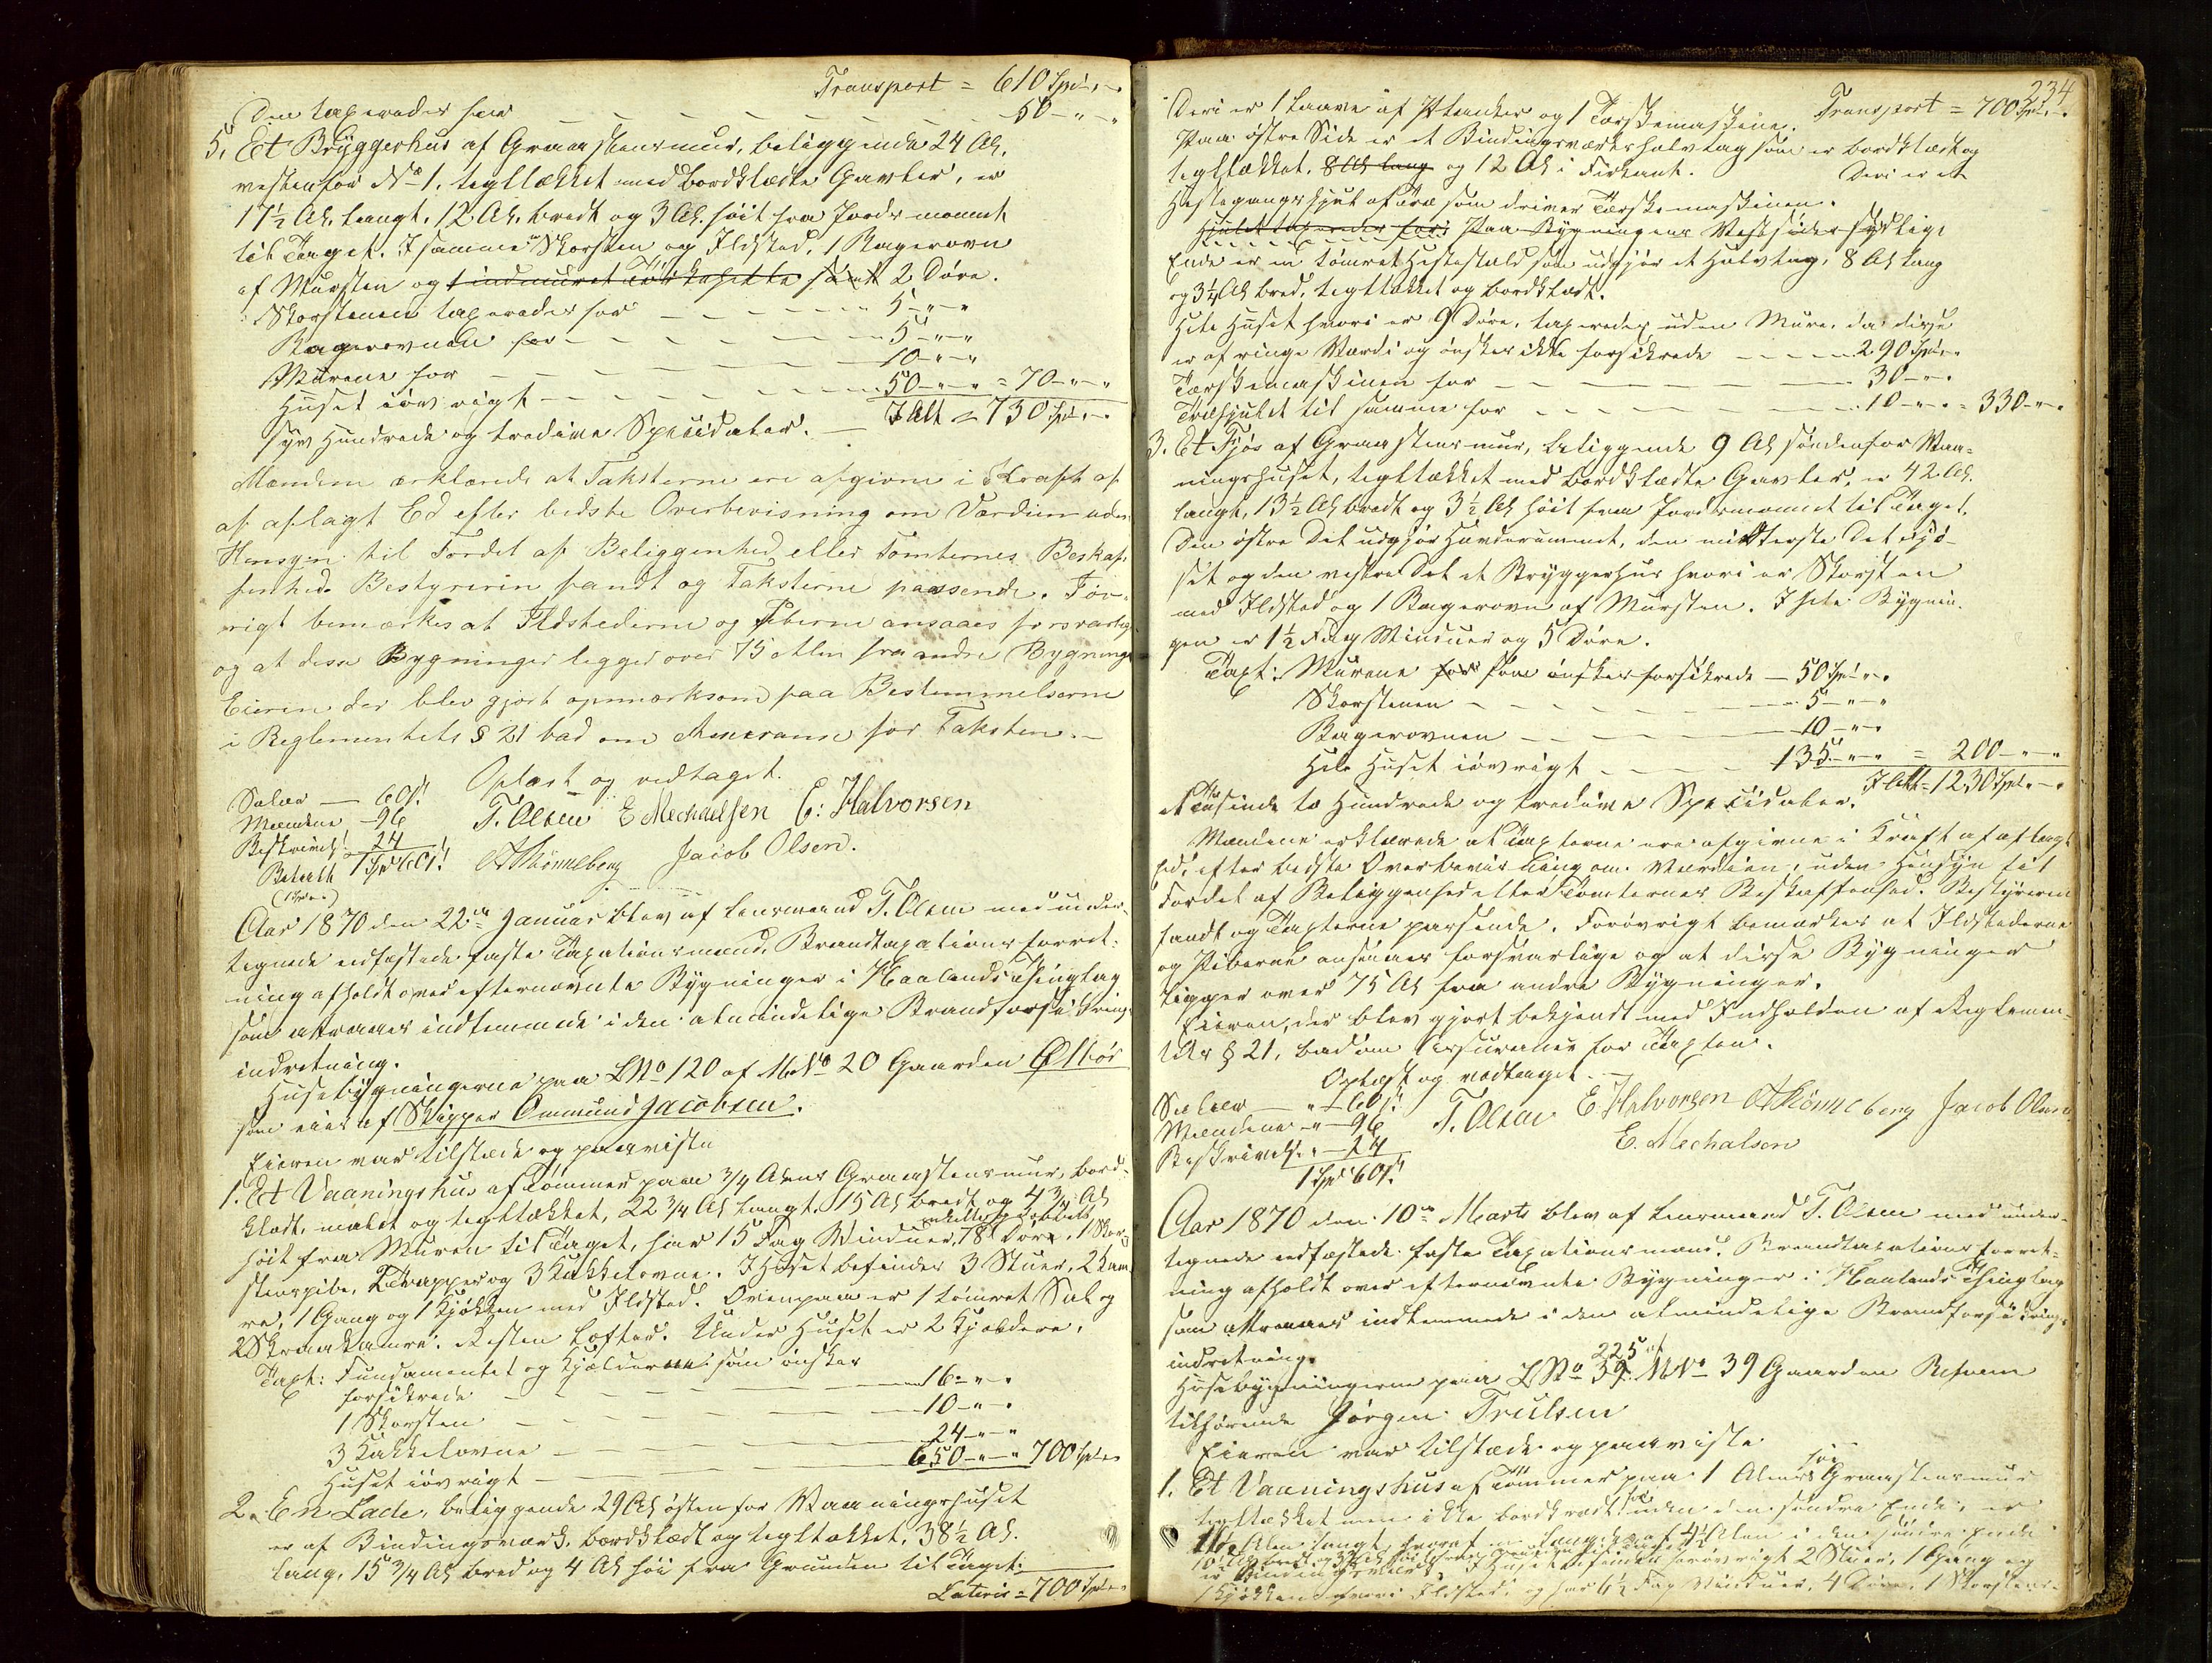 Transport = 610 Spd. " "
Den taxerades for 50 - " - "
5. Et Bryggerhus af Graastensmur, beliggende 24 Al.
vestenfor No 1. tegltækket med bordklædte Gavler, er
17 1/2 Al. langt, 12 Al. bredt og 3 Al. høit fra Jordsmonnet
til Taget. I samme Skorsten og Ildsted, 1 Bagerovn
af Mursten og 2 Døre.
Skorstenen taxerades for 5 - " - "
Bagerovnen for 5 - " - "
Murene for 10 - " - "
Huset iøvrigt 50 - " - " = 70 - " - "
syv Hundrede og tredive Speciedaler. — I Alt = 730 Spd. " "
Mændene erklærede at Taksterne ere afgivne i Kraft af
af aflagt Ed efter bedste Overbevisning om Værdien uden
Hensyn til Fordel af Beliggenhed eller Tomternes Beskaf-
fenhed. Bestyreren fandt og Taksterne passende. Føv-
rigt bemærkes at Ildstederne og Piberne ansaaes forsvarlige
og at disse Bygninger ligger over 75 Alen fra andre Bygninger
Eieren der blev gjort opmærksom paa Bestemmelserne
i Reglementets § 21 bad om Assurance for Taksten. —
Oplæst og vedtaget.
Salær — 60 s!
Mændene — 96
Beskrivels! 24
Betalt 1 Spd 60 s!
T. Olsen E Mechaelsen E: Halvorsen
A Skönneberg Jacob Olsen.
Aar 1870 den 22de Januar blev af Lensmand T. Olsen med under-
tegnede edfæstede faste Taxationsmænd, Brandtaxationsforret-
ning afholdt over efternævnte Bygninger i Haalands Thinglag
som attraaes indlemmede i den almindelige Brandforsikrings-
indretning.
Husebygningerne paa LNo 120 af MNo 20 Gaarden Ølbør
som eies af Skipper Ommund Jacobsen.
Eieren var tilstede og paaviste
1. Et Vaaningshus af Tømmer paa 3/4 Alens Graastensmur, bord-
klædt, malet og tegltækket, 22 3/4 Al langt, 15 Al bredt og 4 3/4 Al
høit fra Muren til Taget, har 15 Fag Vinduer, 18 Døre, 1 Skor-
stenspibe, 2 Trapper og 3 Kakkelovne. I Huset befindes 3 Stuer, 2 Kam-
re, 1 Gang og 1 Kjøkken med Ildsted. Ovenpaa er 1 tømret Sal og
2 Skraakamre. Resten Lofter. Under Huset er 2 Kjældere.
Taxt: Fundamentet og Kjælderne som ønskes
forsikrede 16 - " - "
1 Skorsten 10 - " - "
3 Kakkelovne 24 - " - "
Huset iøvrigt 650 - " - " 700 Spd. " "
2. En Lade, beliggende 29 Al østenfor Vaaningshuset
er af Bindingsværk, bordklædt og tegltækket, 38 1/2 Al.
lang, 15 3/4 Al bred og 4 Al høi fra Grunden til Taget.
Lateris = 700 Spd. " "
234
Transport = 700 Spd. " "
Deri er 1 Laave af Planker og 1 Tærskemaskine.
Paa østre Side er et Bindingsværkshalvtag som er bordklædt og
tegltækket, 8 Al lang og 12 Al i Firkant. Deri er et
Hestegangshjul af Træ som driver Tærskemaskinen.
Hjulet taxeredes for: Paa Bygningens Vestside sydlige
Ende er en tømret Hestestald som udgjør et Halvtag, 8 Al lang
og 3 1/4 Al bred, tegltækket og bordklædt.
Hele Huset hvori er 9 Døre, taxeredes uden Mure, da disse
er af ringe Værdi og ønskes ikke forsikrede 290 Spd. " "
Tærskemaskinen for 30 - " - "
Træhjulet til samme for 10 - " - " = 330 - " - "
3. Et Fjøs af Graastensmur, beliggende 9 Al søndenfor Vaa-
ningshuset, tegltækket med bordklædte Gavler, er 42 Al.
langt, 13 1/2 Al bredt og 3 1/2 Al høit fra Jordsmonnet til Taget.
Den østre Del udgjør Høuderummet, den midterste Del Fjø-
set og den vestre Del et Bryggerhus hvori er Skorsten
med Ildsted og 1 Bagerovn af Mursten. I hele Bygnin-
gen er 1 1/2 Fag Vinduer og 5 Døre.
Taxt: Murene for som ønskes forsikrede — 50 Spd. " "
Skorstenen 5 - " - "
Bagerovnen 10 - " - "
Hele Huset iøvrigt 135 - " - " = 200 - " - "
I Alt = 1230 Spd. " "
et Tusinde to Hundrede og tredive Speciedaler.
Mændene erklærede at Taxterne ere afgivne i Kraft af aflagt
Ed, efter bedste Overbevisning om Værdien, uden Hensyn til
Fordel af Beliggenhed eller Tomternes Beskaffenhed. Bestyreren
fandt og Taxterne passende. Forøvrigt bemærkes at Ildstederne
og Piberne ansaaes forsvarlige og at disse Bygninger
ligger over 75 Al fra andre Bygninger.
Eieren, der blev gjort bekjendt med Indholden af Reglemen-
tets § 21, bad om Assurance for Taxten.
Oplæst og vedtaget. —
Salær — " 60 s!
Mændene - " - 96
Beskrivelse " — 24
1 Spd 60 s!
T. Olsen E. Halvorsen A Skönneberg Jacob Olsen
E. Mechalsen
Aar 1870 den 10de Marts blev af Lensmand T. Olsen med under-
tegnede edfæstede faste Taxationsmænd, Brandtaxationsforret-
ning afholdt over efternævnte Bygninger i Haalands Thinglag
som attraaes indlemmede i den almindelige Brandforsikrings-
indretning.
225 af
Husebygningerne paa LNo 39. MNo 39 Gaarden Refsnæs
tilhørende Jörgen Trulsen
Eieren var tilstede og paaviste
1. Et Vaaningshus af Tømmer paa 1 Alens høi Graastensmur
tegltækket men ikke bordklædt uden i den søndre Ende, er
Alen langt, hvoraf en Længde af 4 1/2 Alen i den søndre Ende
er Bindingsværk. I Huset befindes forøvrigt 2 Stuer, 1 Gang og
1 Kjøkken hvori Ildsted, og har 6 1/2 Fag Vinduer, 4 Døre, 1 Skorstens-